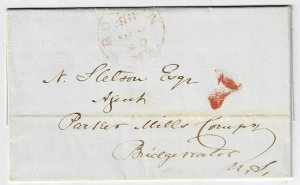 N. Stetson Esqr
Agent
Parker Mills Compy
Bridgewater